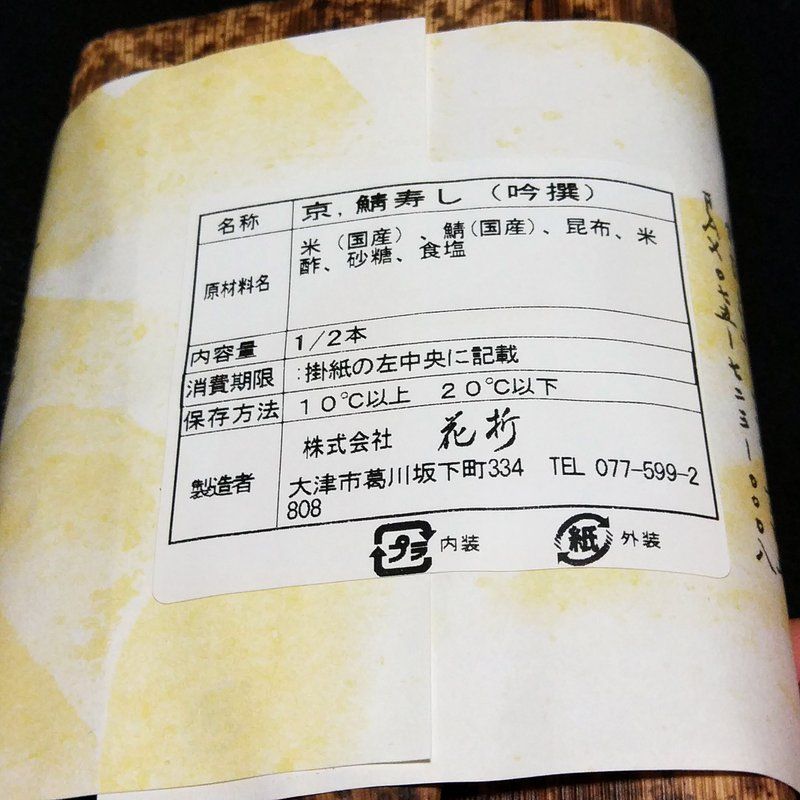 名称 京,鯖寿し（吟撰）
原材料名 米（国産）、鯖(国産)、昆布、米
酢、砂糖、食塩
内容量 1/2本
消費期限 :掛紙の左中央に記載
保存方法 10℃以上 20℃以下
製造者 株式会社 花折
大津市葛川坂下町334 TEL 077-599-2
808
プラ 内装 紙 外装
〇七五ー七二三ー〇〇〇八